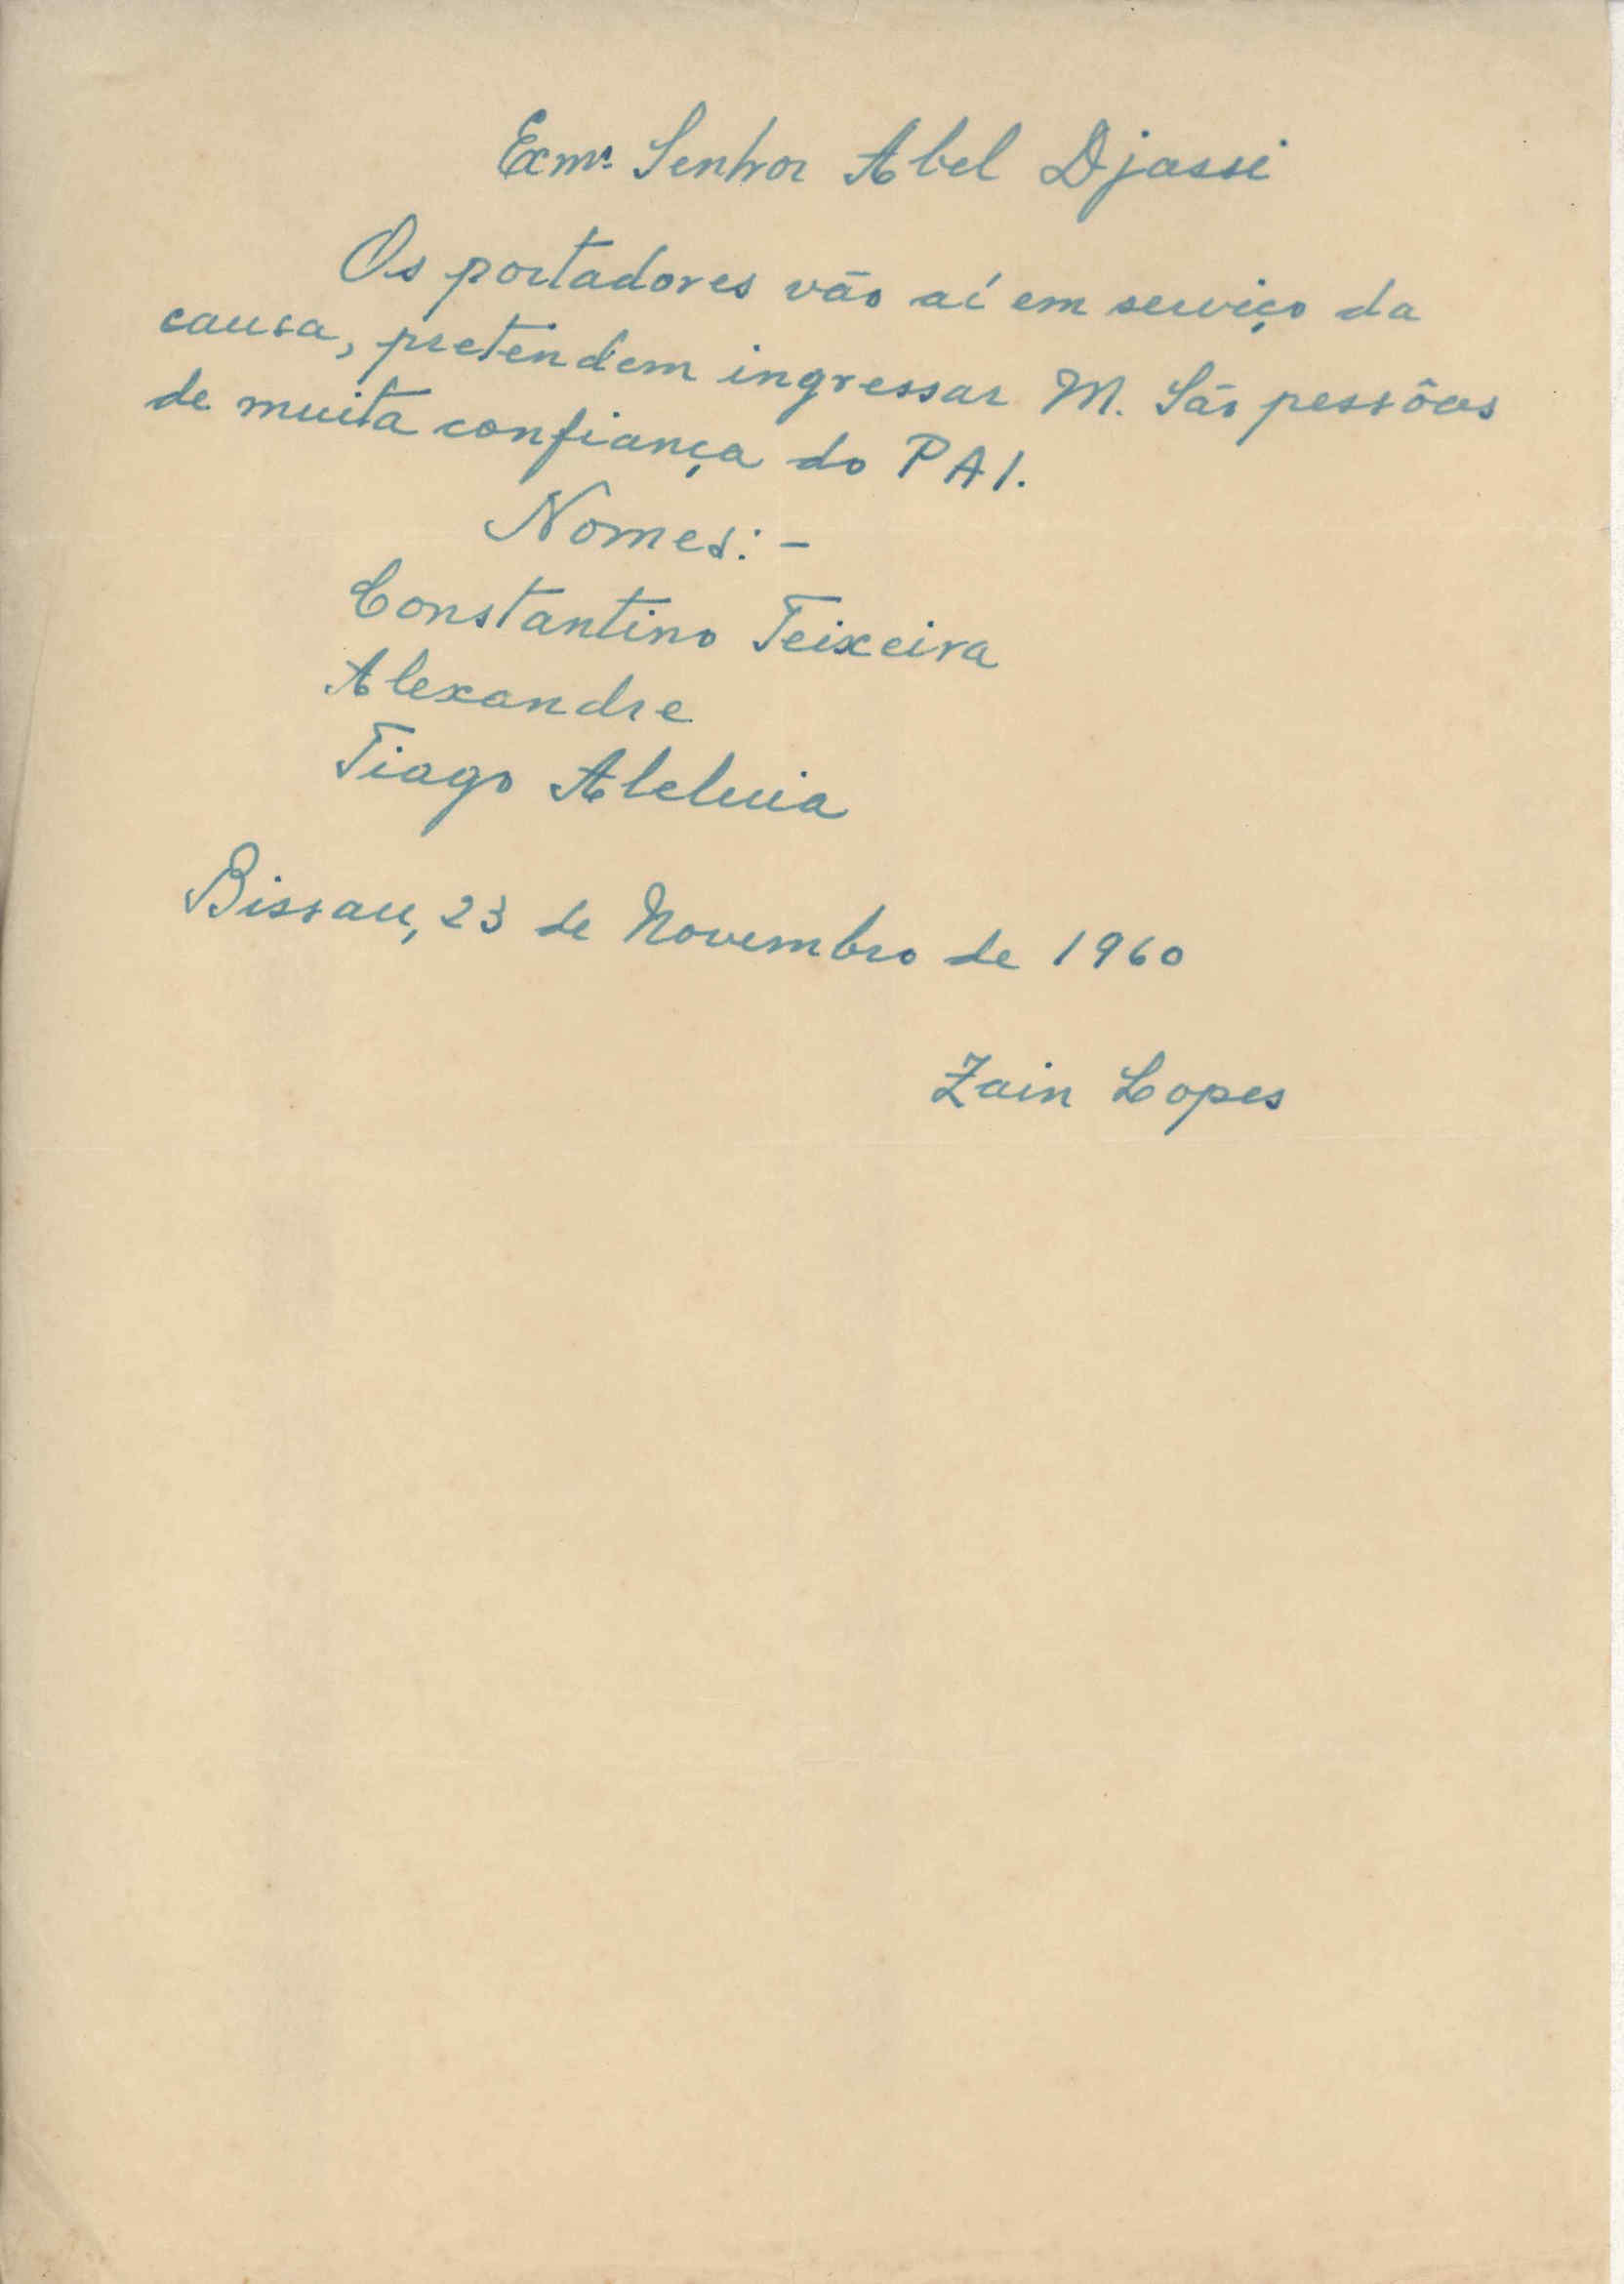 Exmº Senhor Abel Djassi
Os portadores vão aí em serviço da
causa, pretendem ingressar M. São pessôas
de muita confiança do PAI.
Nomes: -
Constantino Teixeira
Alexandre
Tiago Aleluia
Bissau, 23 de Novembro de 1960
Zain Lopes